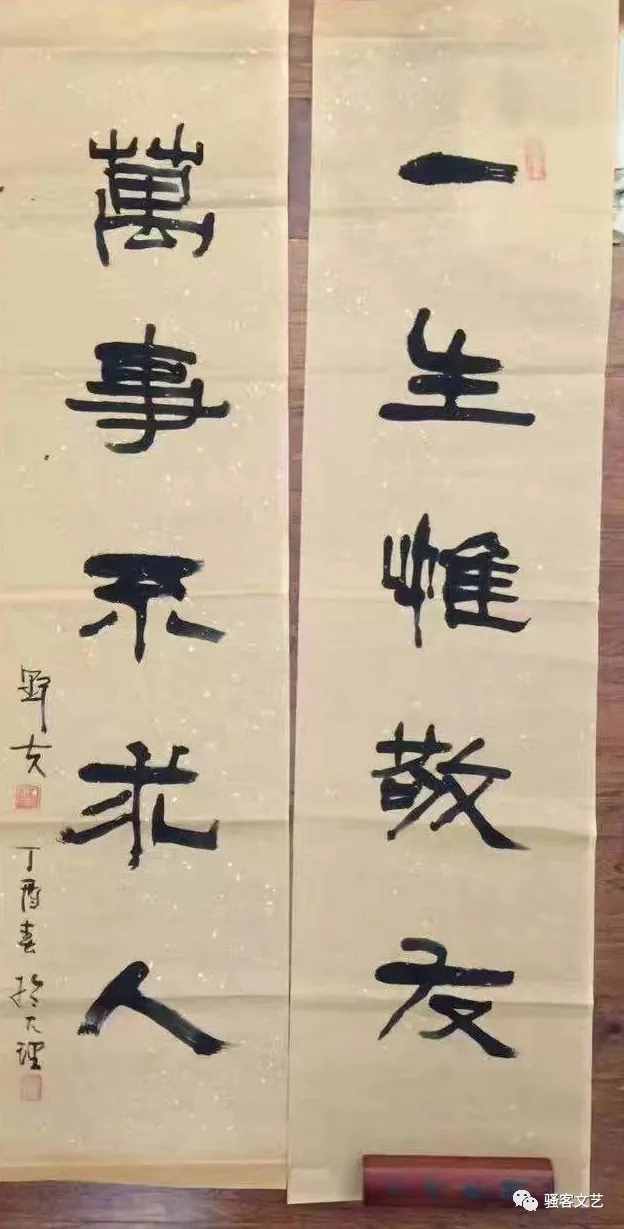 一生惟敬友
萬事不求人
野夫
丁酉春於大理
骚客文艺